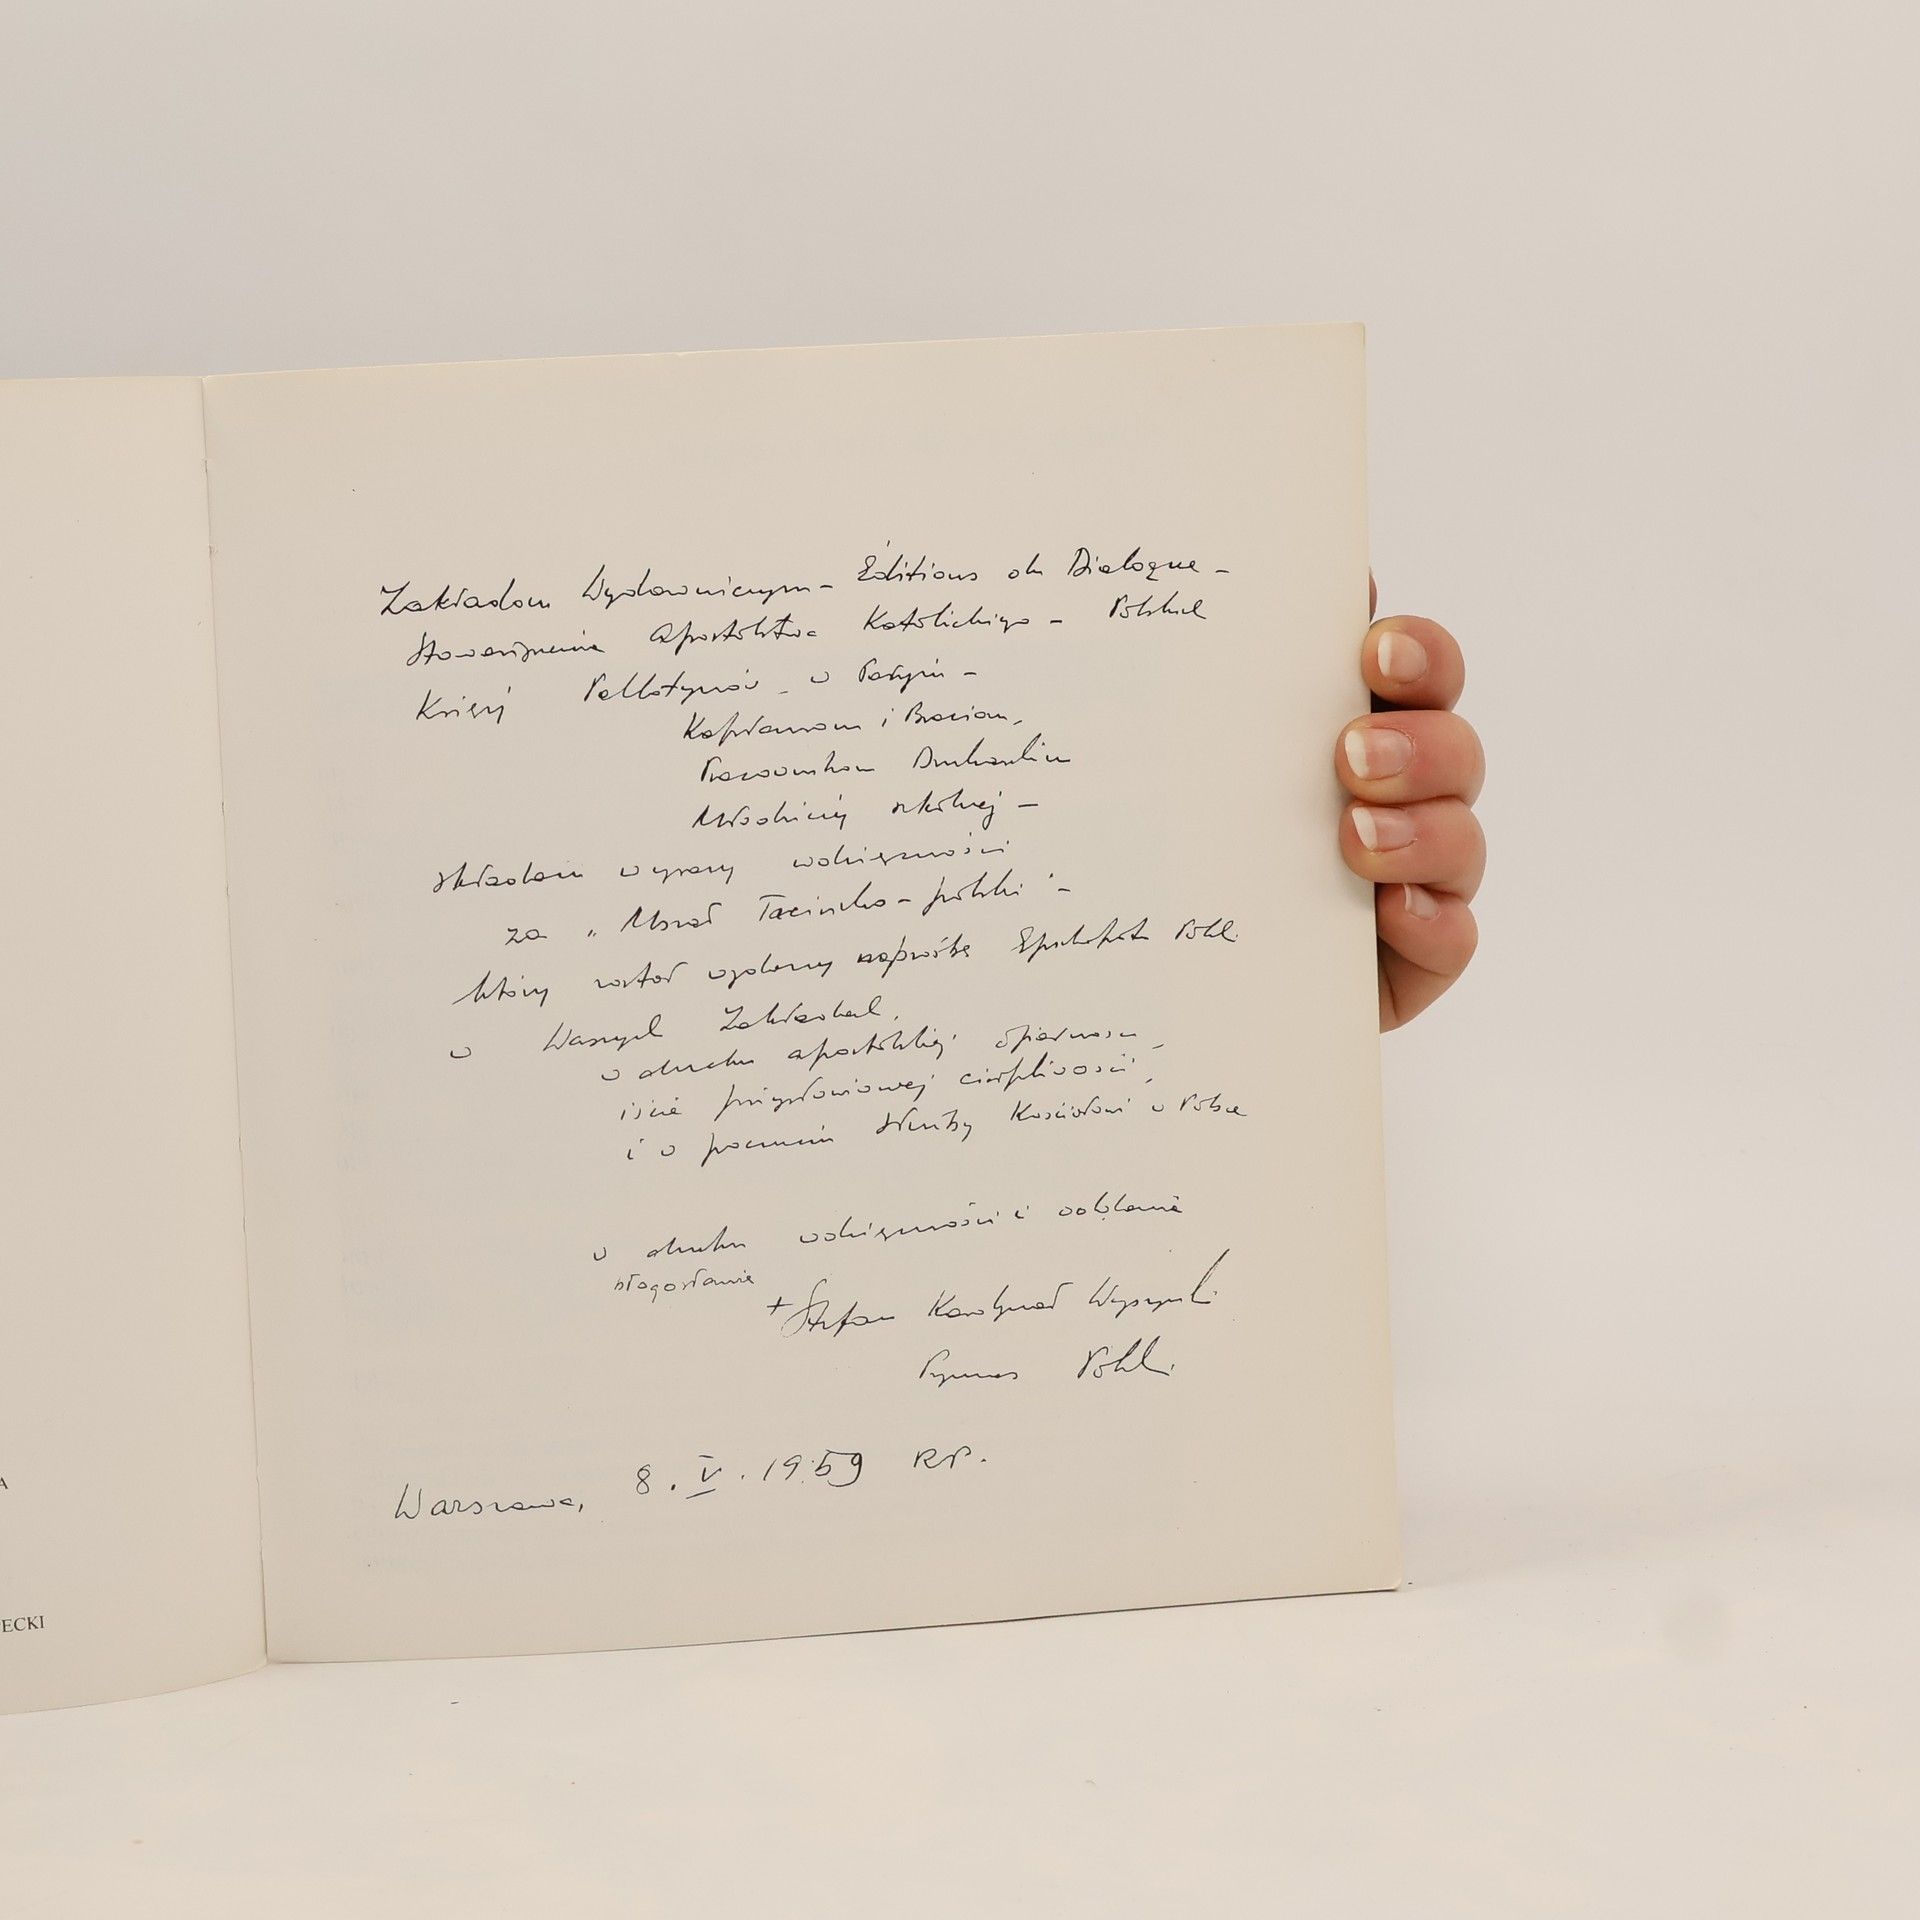 Zakładom Wydawniczym – Éditions du Dialogue –
Stowarzyszenia Apostolstwa Katolickiego – Polskich
Księży Pallotynów – w Paryżu –
Kapłanom i Braciom,
Pracownikom Drukarskim
Młodzieży szkolnej –
składam wyrazy wdzięczności
za „Mszał Łacińsko-polski" –
który został wydany na prośbę Episkopatu Polski
w Waszych Zakładach,
w duchu apostolskiej ofiarności,
iście przysłowiowej cierpliwości,
i w poczuciu służby Kościołowi w Polsce
w duchu wdzięczności i oddania
błogosławię
+ Stefan Kardynał Wyszyński
Prymas Polski
Warszawa, 8. V. 1969 RP.
A
ECKI